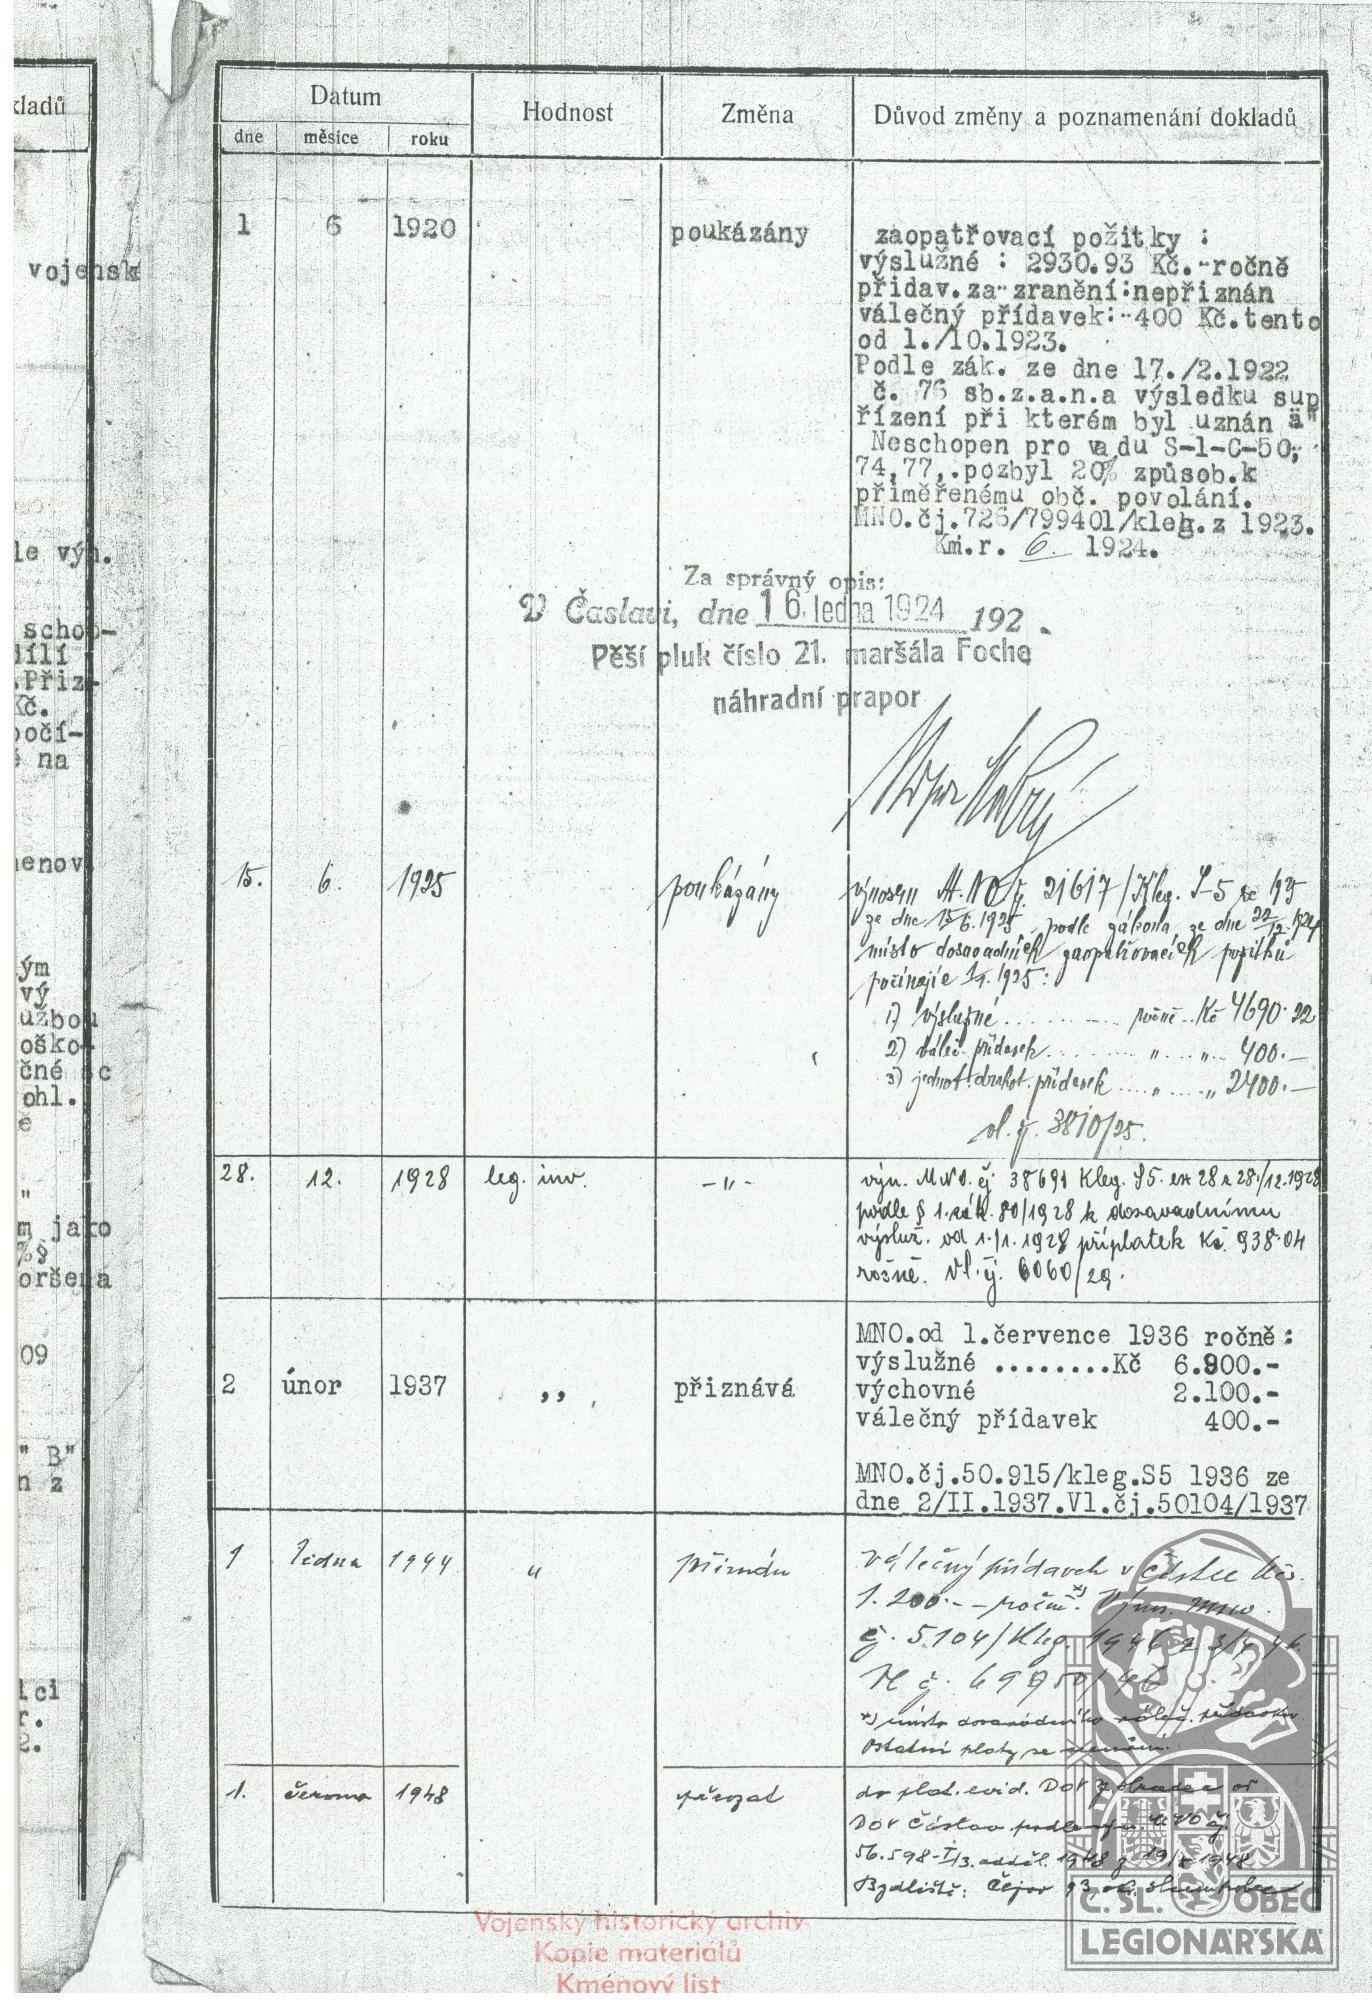 kladů
vojensk
le výn.
schop-
dílí
.Přiz-
Kč.
počí-
na
menov.
ým
vý
užbou
oško-
čné
ohl.
"
m jako
%§
oršena
09
" B"
n z
lci
r.
2.
Datum
Hodnost
Změna
Důvod změny a poznamenání dokladů
dne
měsíce
roku
1 6 1920 poukázány
zaopatřovací požitky :
výslužné : 2930.93 Kč.-ročně
přídav.za-zranění:nepřiznán
válečný přídavek:-400 Kč.tento
od 1./10.1923.
Podle zák. ze dne 17./2.1922
č. 76 sb.z.a.n.a výsledku sup
řízení při kterém byl uznán ä"
Neschopen pro vadu S-1-C-50,
74,77,.pozbyl 20% způsob.k
přiměřenému obč. povolání.
MNO.čj.726/799401/kleg.z 1923.
Km.r. 6. 1924.
Za správný opis:
V Čáslavi, dne 16. ledna 1924 192 .
Pěší pluk číslo 21. maršála Foche
náhradní prapor
15. 6. 1925 poukázány
výnosem M.NO čj. 21617/Kleg. S-5 ze 1925
ze dne 15/6.1925, podle zákona ze dne 22/12.1924
místo dosavadních zaopatřovacích požitků
počínajíc 1/1.1925:
1) výslužné .......... ročně.. Kč 4690.22
2) váleč. přídavek.......... " .... " .. 400.-
3) jednot. drahot. přídavek .... " .... " 2400.-
vl. čj. 3810/25.
28. 12. 1928 leg. inv. -"-
výn. MNO. čj. 38691 Kleg. S5. ex 28 z 28./12.1928
podle § 1. zák. 80/1928 k dosavadnímu
výsluž. od 1./1. 1928 příplatek Kč. 938.04
ročně. Vl. čj. 6060/29.
2 únor 1937 ,, přiznává
MNO.od 1.července 1936 ročně:
výslužné ........Kč 6.900.-
výchovné 2.100.-
válečný přídavek 400.-
MNO.čj.50.915/kleg.S5 1936 ze
dne 2/II.1937.Vl.čj.50104/1937
1 ledna 1944 "
válečný přídavek v částce Kčs.
1.200.-- ročně. *) Výn. MNO.
čj. 5.104/Kleg. 1946
*) místo dosavadního váleč. přídavku
Ostatní platy se nemění.
1. června 1948 převzat
do plat. evid. DOV
DOV Čáslav podle výn. MNO čj.
56.598-I/3. odděl. 1948 z 1948
Bydliště: 93,
Č. SL. OBEC
LEGIONÁŘSKÁ
Vojenský historický archiv
Kopie materiálů
Kmenový list